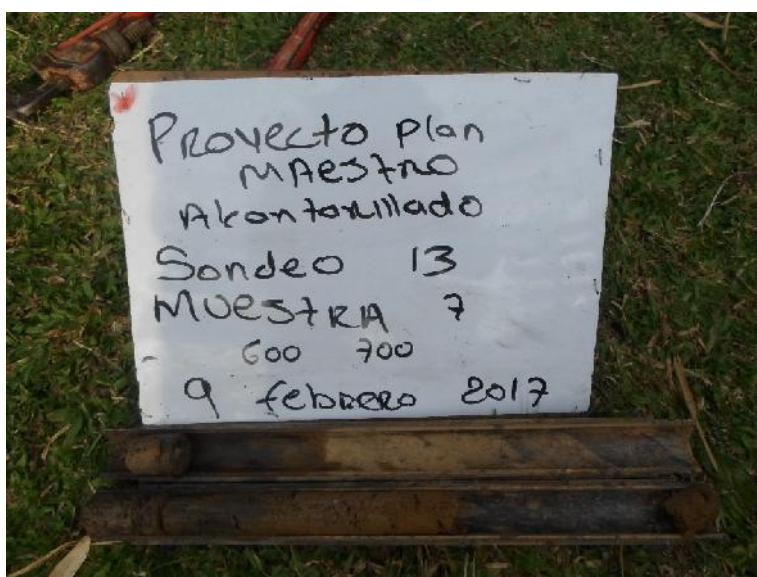 Proyecto plan
MAestro
Alcantarillado
Sondeo 13
MUEStRA 7
600 700
9 febrero 2017